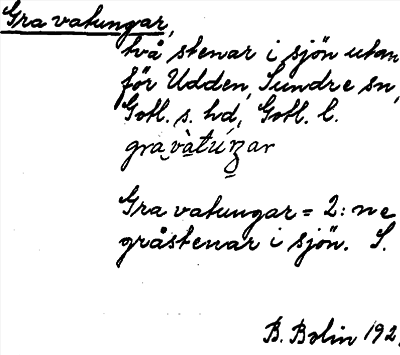 Gra vatungar,
två stenar i sjön utan
för Udden, Sundre sn,
Gotl. s. hd, Gotl. l.
gravàtúŋar
Gra vatungar = 2:ne
gråstenar i sjön. S.
B. Bolin 192.